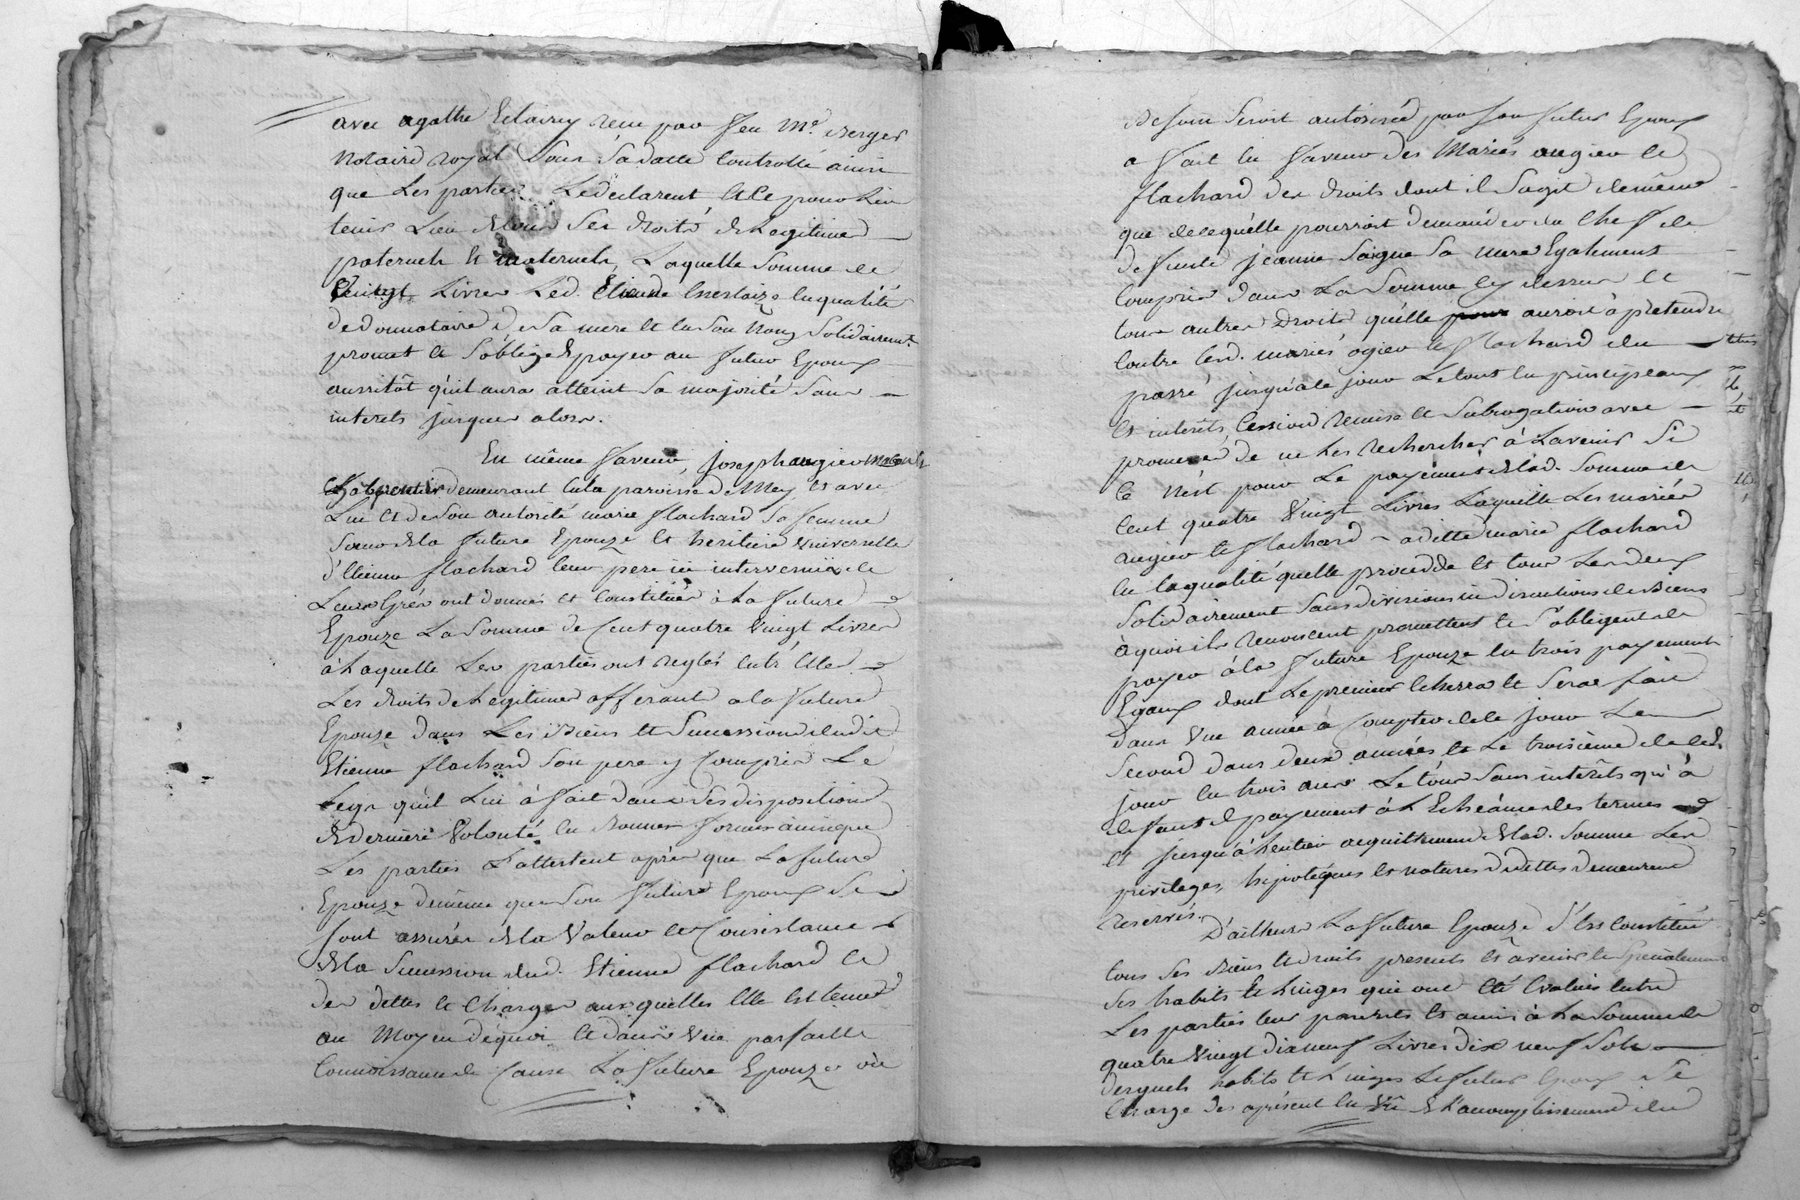 avec agathe Eclairy recu par feu Me. Berger
Notaire royal Sous Sa datte Controllé ainsi
que Les parties Le declarent et ce pour Lui
tenir Lieu de tous Ses droits de Legitime
paternels et maternels, Laquelle Somme de
Vingt Livres Led. Etienne en qualité
de donnataire de Sa mere et en Son Nom Solidairemt.
promet et S'oblige de payer au futur Epoux
aussitôt qu'il aura atteint Sa majorité Sans
interets jusques alors.
En même faveur, Joseph augier
Charpentier demeurant en la paroisse de Mey et avec
Lui et de Son autorité marie flachard Sa femme
Sœur de la future Epouze et heritiere universelle
d'Etienne flachard leur pere ici intervenir de
Leurs Grés ont donnés et Constitués à La future
Epouze La Somme de Cent quatre Vingt Livres
à Laquelle Les parties ont reglés entr'Elles
Les droits de Legitime afferants a la future
Epouze dans Les Biens et Succession dudit
Etienne flachard Son pere y Compris Le
Legs qu'il Lui à fait dans Ses dispositions
de derniere Volonté en bonnes formes ainsi que
Les parties L'attestent après que La future
Epouze de même que Son futur Epoux Se
Sont assurés de la Valeur et Consistance
de la Succession dud. Etienne flachard et
des dettes et Charges aux quelles Elle est tenue
au Moyen de quoi et dans une parfaitte
Connoissance de Cause La future Epouze où
Besoin Seroit autorisée par Son futur Epoux
a fait en faveur des Mariés augier et
flachard des droits dont il S'agit de même
que de ce qu'elle pourroit demander du Chef de
defunte jeanne Saigne Sa mere Egalement
Compris dans La Somme Cy dessus et
tous autres Droits qu'elle pour auroit à pretendre
Contre lesd. mariés ogier et flachard du
passé jusqu'à ce jour Le tout en principaux
et interêts, Cession remise et Subrogation avec
promesse de ne Les rechercher à L'avenir Si
Ce n'est pour Le payement de lad. Somme de
Cent quatre Vingt Livres Laquelle Les mariés
augier et flachard a ditte marie flachard
en la qualité quelle procedde et tous Les deux
Solidairement Sans division ni discution de Biens
à quoi ils renoncent promettent et S'obligent de
payer à la future Epouze en trois payements
Egaux dont Le premier Echerra et Sera fait
dans une année à Compter de ce jour Le
Second dans deux années et Le troisieme de ce d.
jour en trois ans Le tout Sans interêts qu'à
deffaut de payement à L'Echéance des termes
et jusqu'à L'entier acquittement de lad. Somme Les
privileges, hipotéques et natures de dettes demeurent
reservés.
D'ailleurs La future Epouze S'est Constitué
tous Ses Biens et droits presents et à venir et Specialement
Ses habits et Linges qui ont Eté Evalués Entre
Les parties leur parents et amis à La Somme de
quatre Vingt dix neuf Livres dix neuf Sols
desquels habits et Linges Le futur Epoux Se
Charge des aprésent en vû de L'accomplissement du